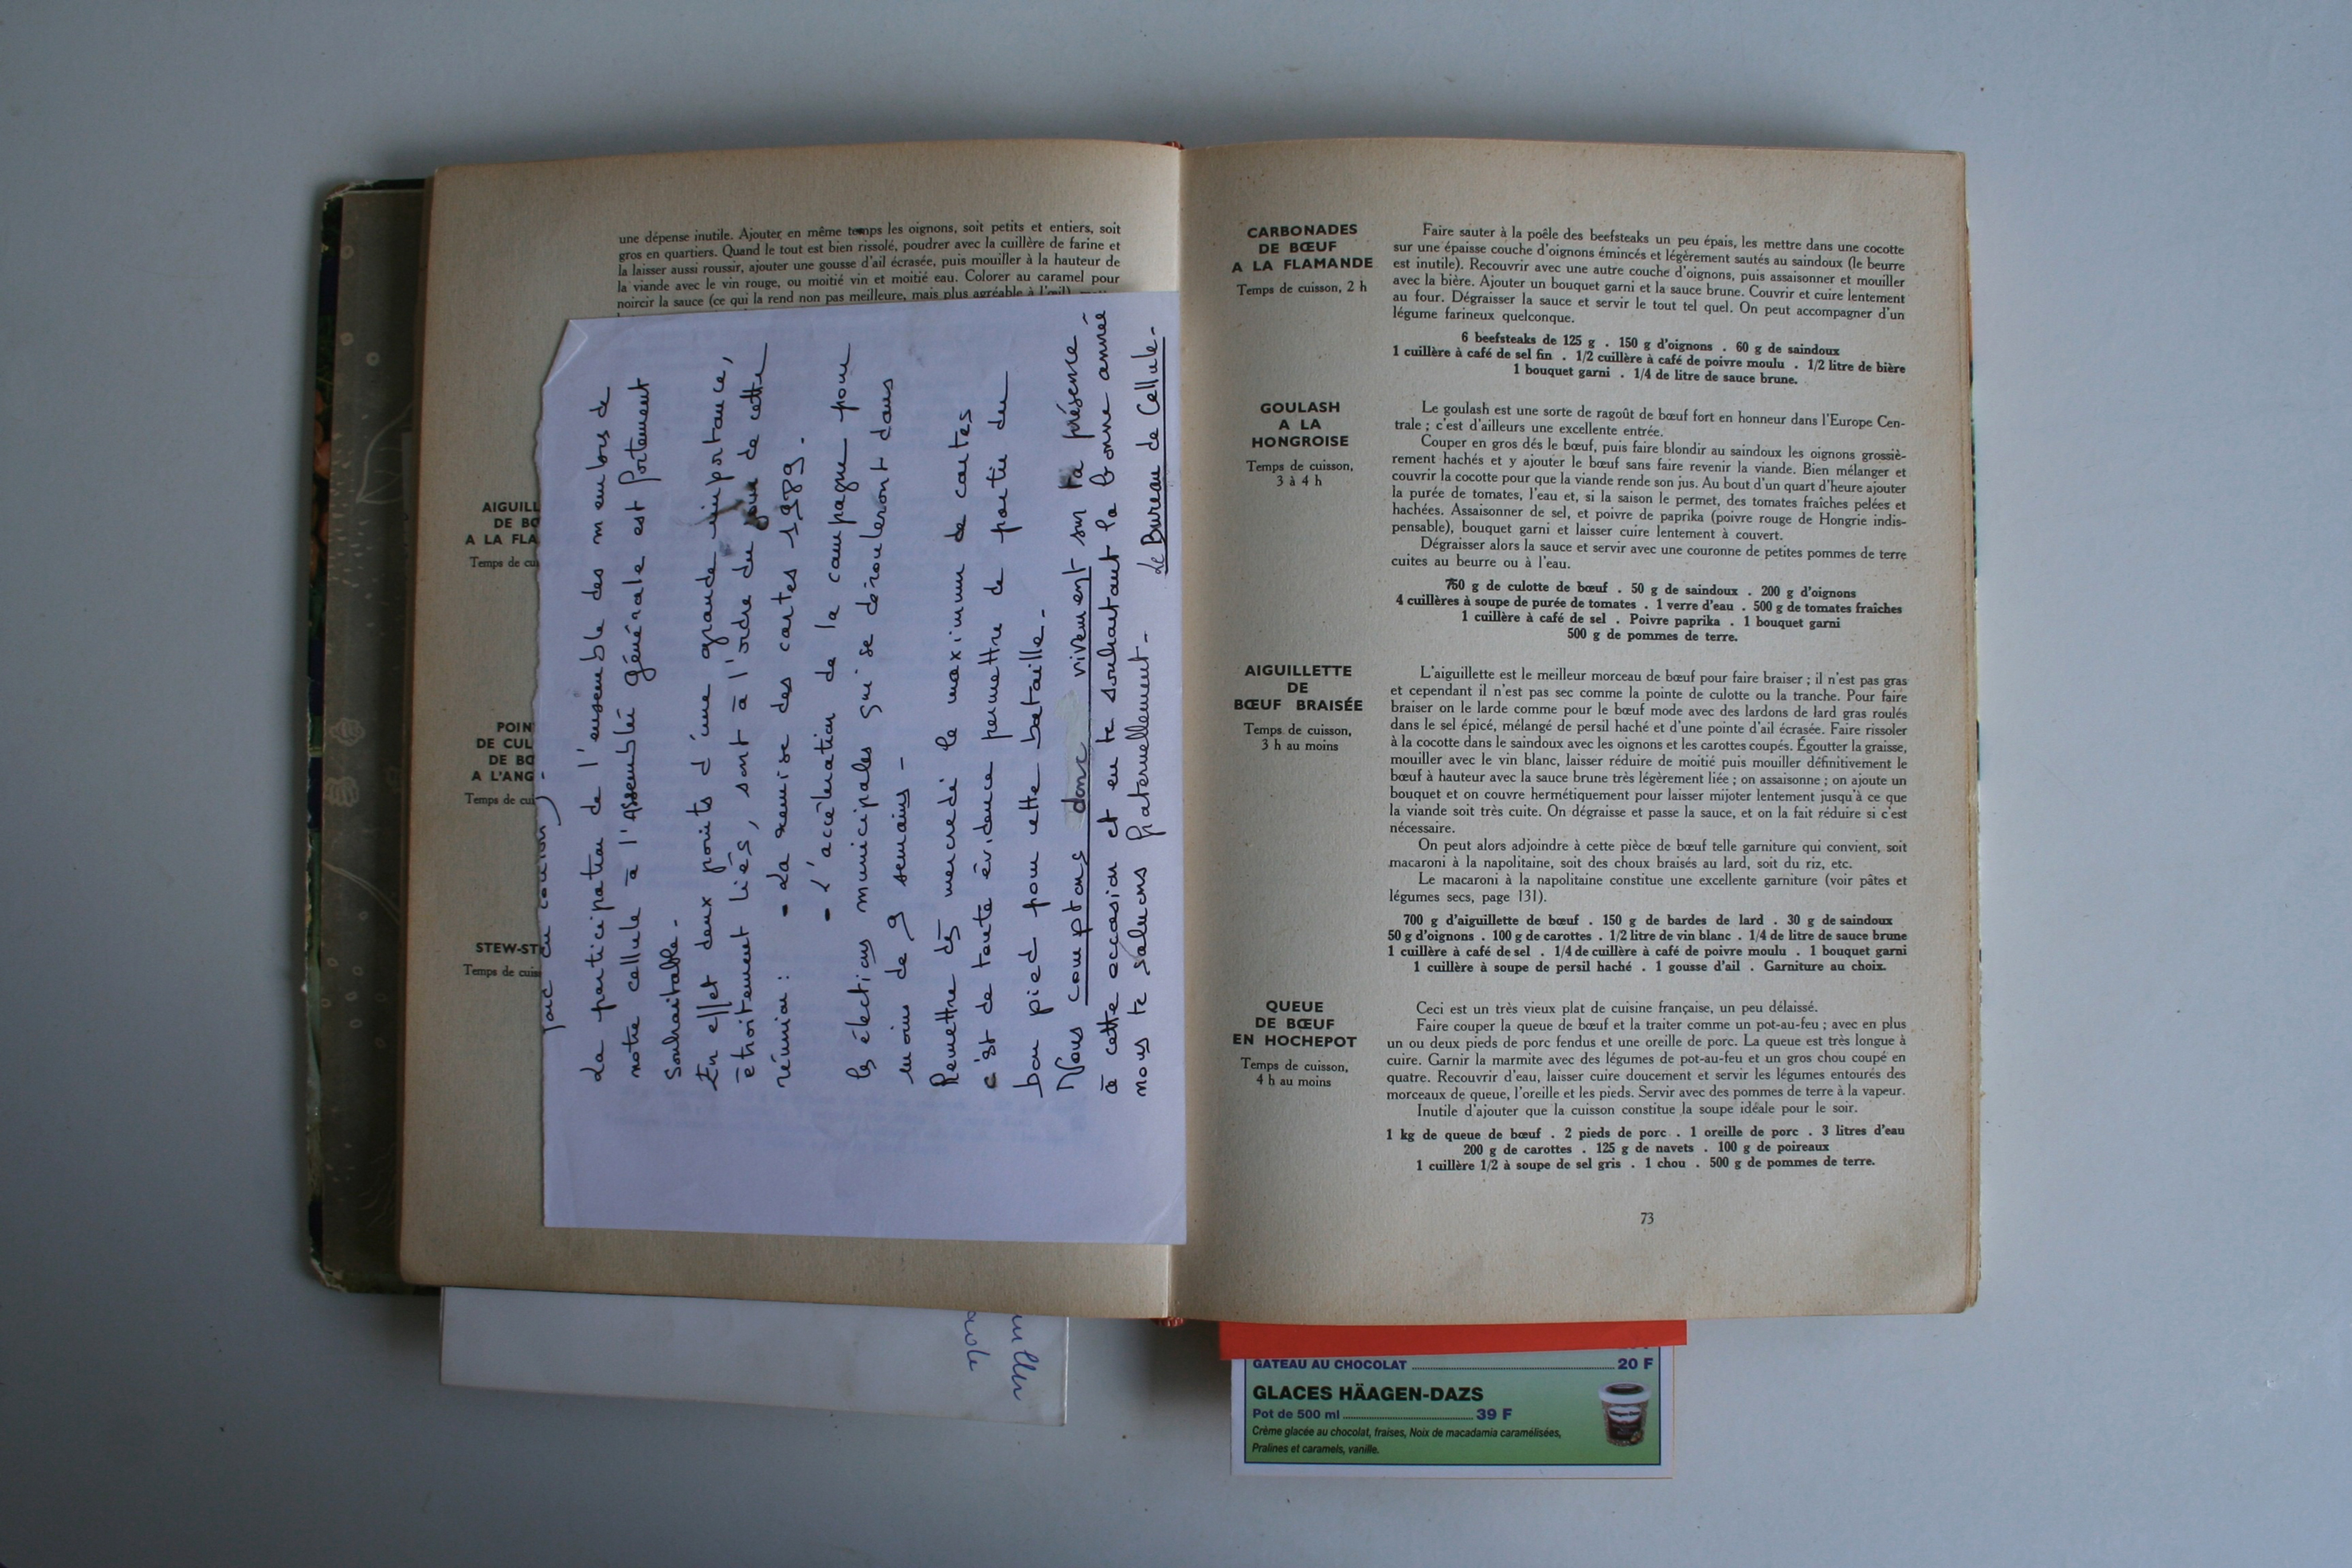 une dépense inutile. Ajouter en même temps les oignons, soit petits et entiers, soit
gros en quartiers. Quand le tout est bien rissolé, poudrer avec la cuillère de farine et
la laisser aussi roussir, ajouter une gousse d'ail écrasée, puis mouiller à la hauteur de
la viande avec le vin rouge, ou moitié vin et moitié eau. Colorer au caramel pour
noircir la sauce (ce qui la rend non pas meilleure, mais plus agréable à l'œil)
AIGUILL
DE BO
A LA FLA
Temps de cui
POIN
DE CUL
DE BO
A L'ANG
Temps de cui
STEW-ST
Temps de cuis
La participation de l'ensemble des membres de
notre cellule à l'Assemblée générale est fortement
souhaitable.
En effet deux points d'une grande importance,
étroitement liés, sont à l'ordre du jour de cette
réunion : - La remise des cartes 1989.
- L'accélération de la campagne pour
les élections municipales qui se dérouleront dans
moins de 9 semaines -
Remettre dès mercredi le maximum de cartes
c'est de toute évidence permettre de partir du
bon pied pour cette bataille -
Nous comptons donc vivement sur ta présence
à cette occasion et en te souhaitant la bonne année
nous te saluons fraternellement -
Le Bureau de Cellule -
CARBONADES
DE BŒUF
A LA FLAMANDE
Temps de cuisson, 2 h
Faire sauter à la poêle des beefsteaks un peu épais, les mettre dans une cocotte
sur une épaisse couche d'oignons émincés et légèrement sautés au saindoux (le beurre
est inutile). Recouvrir avec une autre couche d'oignons, puis assaisonner et mouiller
avec la bière. Ajouter un bouquet garni et la sauce brune. Couvrir et cuire lentement
au four. Dégraisser la sauce et servir le tout tel quel. On peut accompagner d'un
légume farineux quelconque.
6 beefsteaks de 125 g . 150 g d'oignons . 60 g de saindoux
1 cuillère à café de sel fin . 1/2 cuillère à café de poivre moulu . 1/2 litre de bière
1 bouquet garni . 1/4 de litre de sauce brune.
GOULASH
A LA
HONGROISE
Temps de cuisson,
3 à 4 h
Le goulash est une sorte de ragoût de bœuf fort en honneur dans l'Europe Cen-
trale ; c'est d'ailleurs une excellente entrée.
Couper en gros dés le bœuf, puis faire blondir au saindoux les oignons grossiè-
rement hachés et y ajouter le bœuf sans faire revenir la viande. Bien mélanger et
couvrir la cocotte pour que la viande rende son jus. Au bout d'un quart d'heure ajouter
la purée de tomates, l'eau et, si la saison le permet, des tomates fraîches pelées et
hachées. Assaisonner de sel, et poivre de paprika (poivre rouge de Hongrie indis-
pensable), bouquet garni et laisser cuire lentement à couvert.
Dégraisser alors la sauce et servir avec une couronne de petites pommes de terre
cuites au beurre ou à l'eau.
750 g de culotte de bœuf . 50 g de saindoux . 200 g d'oignons
4 cuillères à soupe de purée de tomates . 1 verre d'eau . 500 g de tomates fraîches
1 cuillère à café de sel . Poivre paprika . 1 bouquet garni
500 g de pommes de terre.
AIGUILLETTE
DE
BŒUF BRAISÉE
Temps de cuisson,
3 h au moins
L'aiguillette est le meilleur morceau de bœuf pour faire braiser ; il n'est pas gras
et cependant il n'est pas sec comme la pointe de culotte ou la tranche. Pour faire
braiser on le larde comme pour le bœuf mode avec des lardons de lard gras roulés
dans le sel épicé, mélangé de persil haché et d'une pointe d'ail écrasée. Faire rissoler
à la cocotte dans le saindoux avec les oignons et les carottes coupés. Égoutter la graisse,
mouiller avec le vin blanc, laisser réduire de moitié puis mouiller définitivement le
bœuf à hauteur avec la sauce brune très légèrement liée ; on assaisonne ; on ajoute un
bouquet et on couvre hermétiquement pour laisser mijoter lentement jusqu'à ce que
la viande soit très cuite. On dégraisse et passe la sauce, et on la fait réduire si c'est
nécessaire.
On peut alors adjoindre à cette pièce de bœuf telle garniture qui convient, soit
macaroni à la napolitaine, soit des choux braisés au lard, soit du riz, etc.
Le macaroni à la napolitaine constitue une excellente garniture (voir pâtes et
légumes secs, page 131).
700 g d'aiguillette de bœuf . 150 g de bardes de lard . 30 g de saindoux
50 g d'oignons . 100 g de carottes . 1/2 litre de vin blanc . 1/4 de litre de sauce brune
1 cuillère à café de sel . 1/4 de cuillère à café de poivre moulu . 1 bouquet garni
1 cuillère à soupe de persil haché . 1 gousse d'ail . Garniture au choix.
QUEUE
DE BŒUF
EN HOCHEPOT
Temps de cuisson,
4 h au moins
Ceci est un très vieux plat de cuisine française, un peu délaissé.
Faire couper la queue de bœuf et la traiter comme un pot-au-feu ; avec en plus
un ou deux pieds de porc fendus et une oreille de porc. La queue est très longue à
cuire. Garnir la marmite avec des légumes de pot-au-feu et un gros chou coupé en
quatre. Recouvrir d'eau, laisser cuire doucement et servir les légumes entourés des
morceaux de queue, l'oreille et les pieds. Servir avec des pommes de terre à la vapeur.
Inutile d'ajouter que la cuisson constitue la soupe idéale pour le soir.
1 kg de queue de bœuf . 2 pieds de porc . 1 oreille de porc . 3 litres d'eau
200 g de carottes . 125 g de navets . 100 g de poireaux
1 cuillère 1/2 à soupe de sel gris . 1 chou . 500 g de pommes de terre.
73
GATEAU AU CHOCOLAT 20 F
GLACES HÄAGEN-DAZS
Pot de 500 ml 39 F
Crème glacée au chocolat, fraises, Noix de macadamia caramélisées,
Pralines et caramels, vanille.